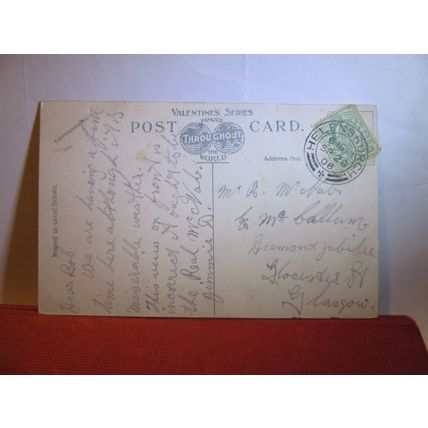 VALENTINE'S SERIES
FAMOUS
POST CARD.
THROUGHOUT
THE
WORLD
Correspondence
Address Only
Printed in Great Britain.
HELENSBURGH
08
Dear Bob
We are having a fine
time here although it is
miserable weather.
This view on front is
incorrect it ought to be
the Real McNab.
Jimmie D.
Mr R. McNab
c/o Mr Callum
Diamond Jubilee
Glocester St
Glasgow.